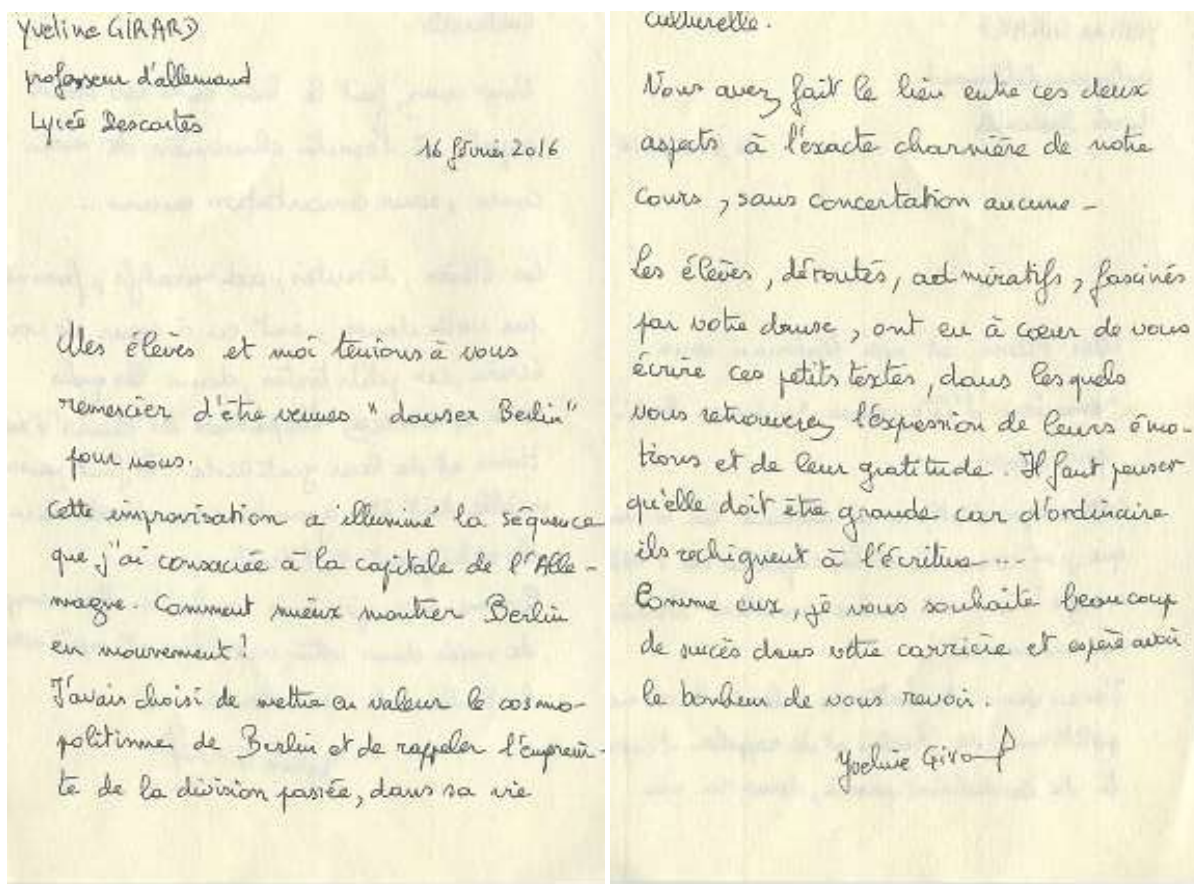 Yveline GIRARD
professeur d'allemand
Lycée Descartes
16 février 2016
Mes élèves et moi tenions à vous
remercier d'être venues "danser Berlin"
pour nous.
Cette improvisation a illuminé la séquence
que j'ai consacrée à la capitale de l'Alle-
magne. Comment mieux montrer Berlin
en mouvement !
J'avais choisi de mettre en valeur le cosmo-
politisme de Berlin et de rappeler l'emprein-
te de la division passée, dans sa vie
culturelle.
Vous avez fait le lien entre ces deux
aspects à l'exacte charnière de notre
cours, sans concertation aucune -
Les élèves, déroutés, admiratifs, fascinés
par votre danse, ont eu à cœur de vous
écrire ces petits textes, dans lesquels
vous retrouverez l'expression de leurs émo-
tions et de leur gratitude. Il faut penser
qu'elle doit être grande car d'ordinaire
ils rechignent à l'écriture...
Comme eux, je vous souhaite beaucoup
de succès dans votre carrière et espère avoir
le bonheur de vous revoir.
Yveline Girard